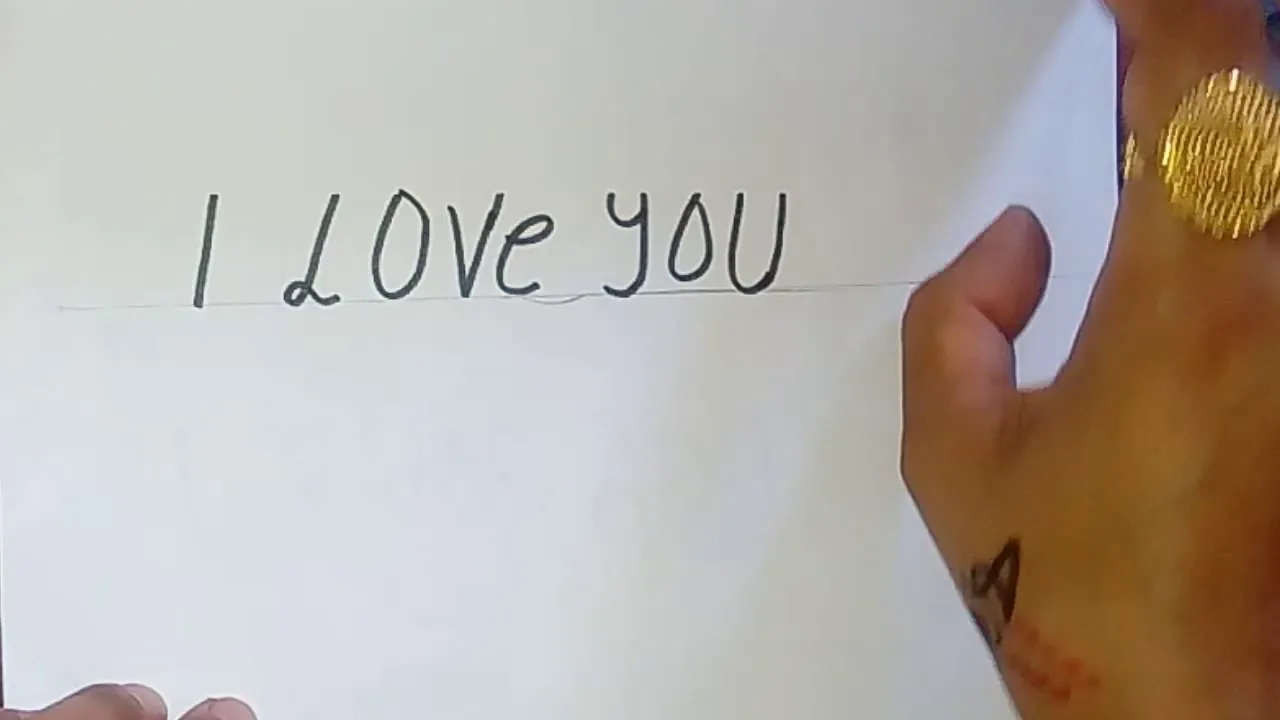 I LOVe YOU